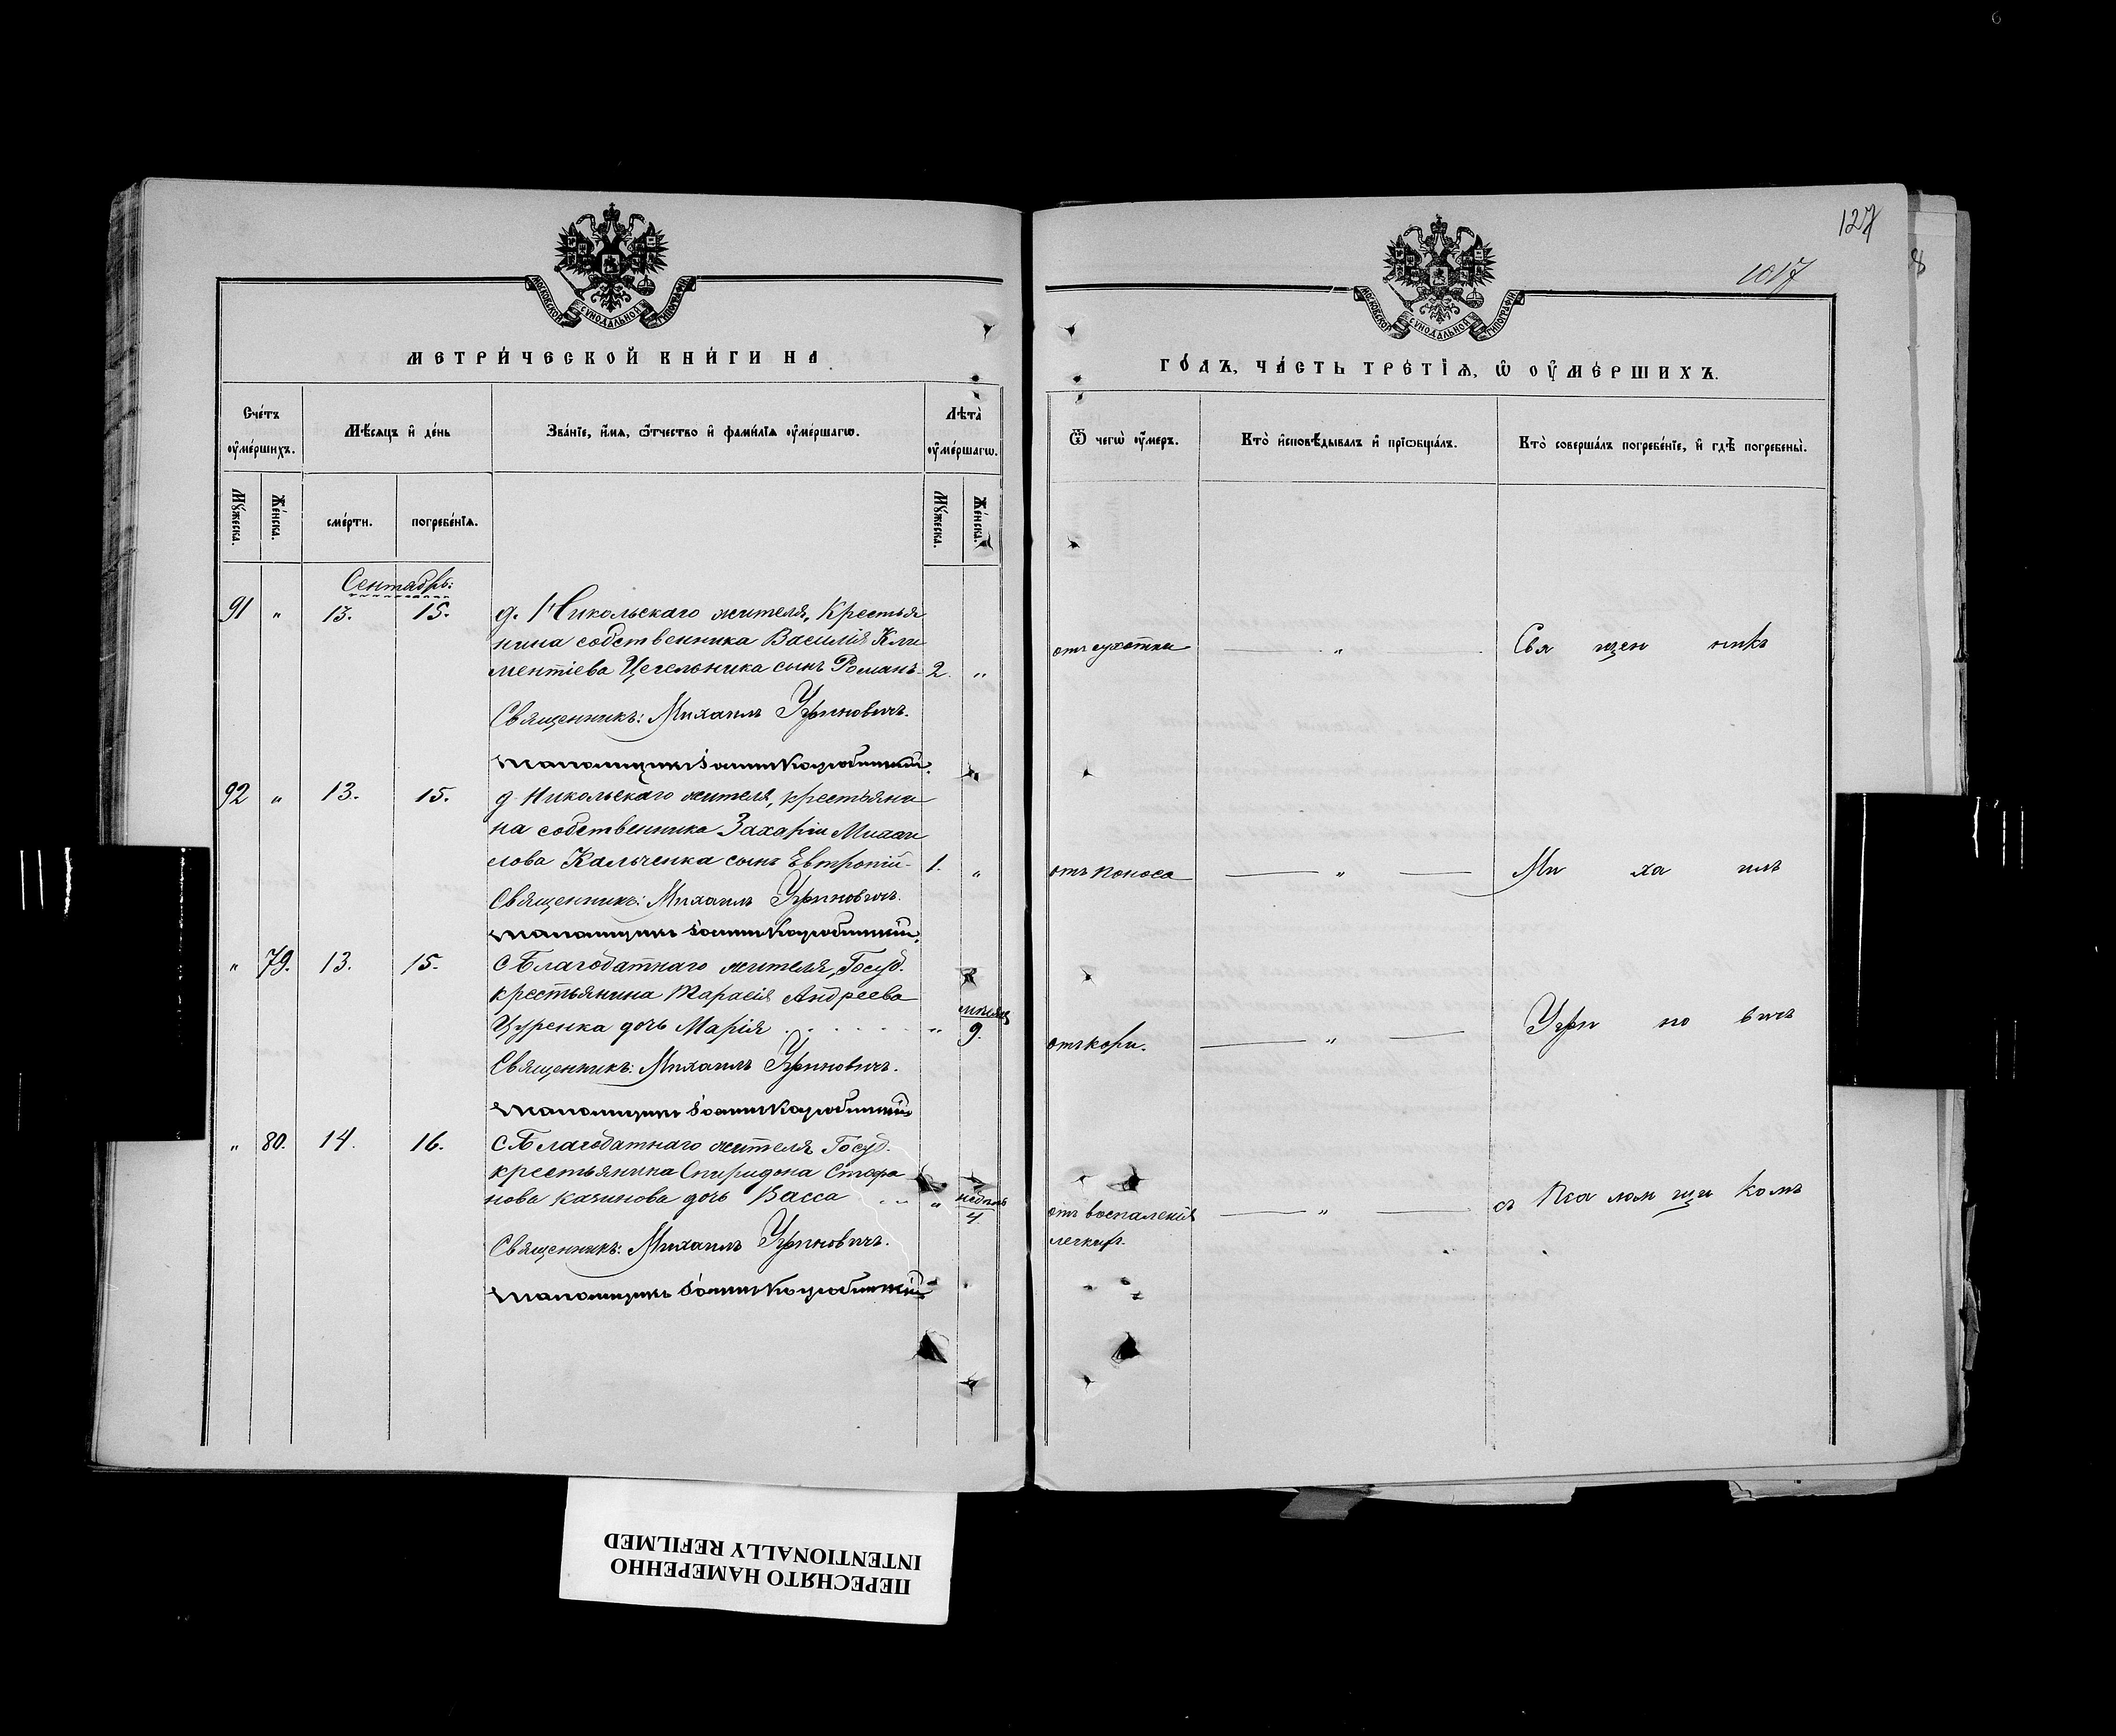 127
1017
МОСКОВСКОЙ СѴНОДАЛЬНОЙ ТИПОГРАФІИ
МЕТРИ́ЧЕСКОЙ КНИ́ГИ НА
Сче́тъ ᲂу҆ме́ршихъ.
Мѣ́сяцъ и҆ де́нь
Зва́нїе, и҆́мя, ѻ҆́тчество и҆ фами́лїя ᲂу҆ме́ршагѡ.
Лѣта̀ ᲂу҆ме́ршагѡ.
Мꙋ́жеска.
Же́нска.
сме́рти.
погребе́нїѧ.
Мꙋ́жеска.
Же́нска.
Сентябрь:
91 " 13. 15. д. Никольскаго жителя, Крестья
нина собственника Василія Кли
ментіева Цегельника сынъ Романъ 2. "
Священникъ: Михаилъ Угриновичъ.
92 " 13. 15. д. Никольскаго жителя, крестьяни
на собственника Захаріи Михаи
лова Кальченка сынъ Евтропій 1. "
Священникъ: Михаилъ Угриновичъ.
" 79. 13. 15. с. Благодатнаго жителя, Госуд.
крестьянина Тарасія Андреева
Цуренка дочь Марія " мѣсяц 9.
Священникъ: Михаилъ Угриновичъ.
" 80. 14. 16. с. Благодатнаго жителя Госуд.
крестьянина Спиридона Стефа
нова Качинова дочь Васса " недѣль 4
Священникъ: Михаилъ Угриновичъ.
МОСКОВСКОЙ СѴНОДАЛЬНОЙ ТИПОГРАФІИ
ГО́ДЪ, ЧА́СТЬ ТРЕ́ТЇѦ, Ѡ҆ ОУ҆МЕ́РШИХЪ.
Ѿ чегѡ̀ ᲂу҆́меръ.
Кто̀ и҆сповѣ́дывалъ и҆ прїѡбща́лъ.
Кто̀ соверша́лъ погребе́нїе, и҆ гдѣ̀ погребены̀.
отъ сухотки " Свя щен никъ
отъ поноса " Ми ха илъ
отъ кори. " Угри но вичъ
отъ воспаленія " съ Пса лом щи комъ
легкихъ.
ПЕРЕСНЯТО НАМЕРЕННО
INTENTIONALLY REFILMED